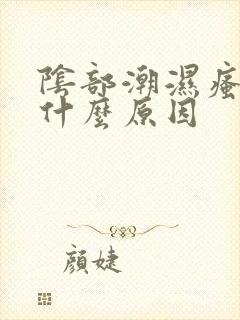 陰部潮濕瘙
什麼原因
顏婕